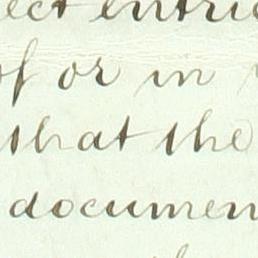 ect entri
of or in
that the
documen